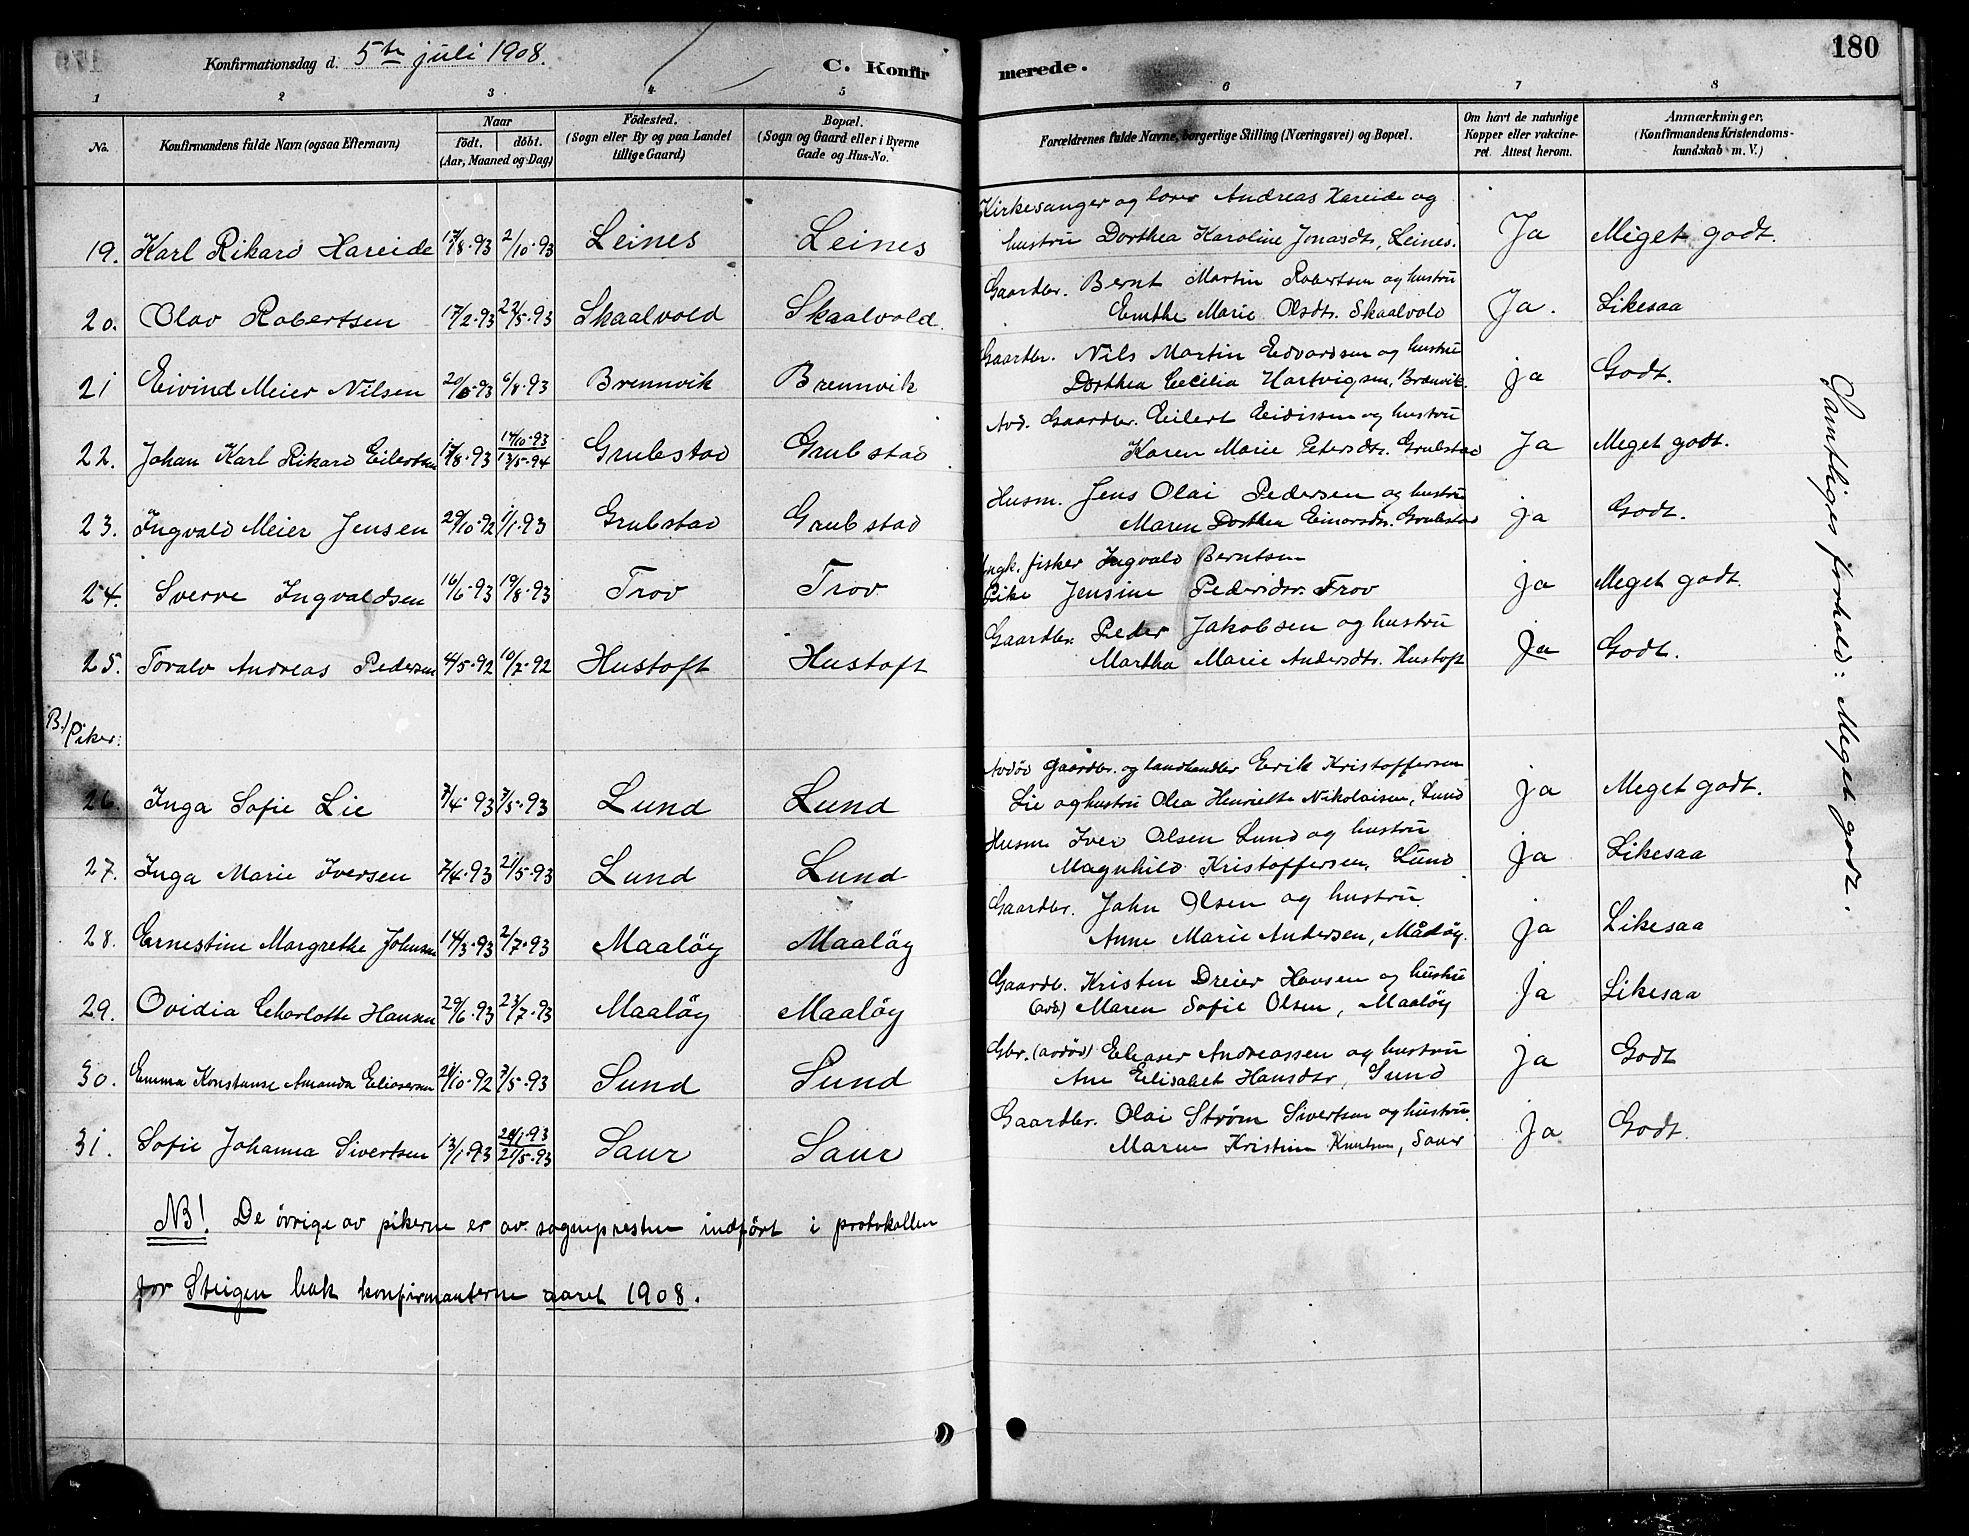 Konfirmationsdag d. 5te juli 1908.
C. Konfirmerede.
180
1 2 3 4 5 6 7 8
No.
Konfirmandens fulde Navn (ogsaa Efternavn)
Naar
födt. döbt.
(Aar, Maaned og Dag)
Födested.
(Sogn eller By og paa Landet
tillige Gaard)
Bopæl.
(Sogn og Gaard eller i Byerne
Gade og Hus-No.)
Forældrenes fulde Navne, borgerlige Stilling (Næringsvei) og Bopæl.
Om havt de naturlige
Kopper eller vakcine-
ret. Attest herom.
Anmærkninger.
(Konfirmandens Kristendoms-
kundskab m. V.)
Kirkesanger og lærer Andreas Hareide og
19. Karl Rikard Hareide 17/8-93 2/10-93 Leines Leines hustru Dorthea Karoline Jonasdtr, Leines. Ja Meget godt.
Gaardbr. Bernt Martin Robertsen og hustru
20. Olav Robertsen 17/2-93 22/5-93 Skaalvold Skaalvold. Emthe Marie Olsdtr. Skaalvold Ja. Likesaa
Gaardbr. Nils Martin Edvardsen og hustru
21 Eivind Meier Nilsen 20/6-93 6/8-93 Brennvik Brennvik Dorthea Cecilia Hartvigsen, Brænvik. ja Godt.
Avd. Gaardbr. Eilert Eidissen og hustru
22. Johan Karl Rikard Eilertsen 17/8-93 17/10-93 13/5-94 Grubstad Grubstad Karen Marie Petersdtr. Grubstad Ja Meget godt.
Husm. Jens Olai Pedersen og hustru
23. Ingvald Meier Jensen 29/10-92 1/1-93 Grubstad Grubstad Maren Dorthea Einarsdtr. Grubstad ja Godt.
Ungk. fisker Ingvald Berntsen
24. Sverre Ingvaldsen 16/6-93 19/8-93 Trov Trov Pike Jensine Pedersdtr. Trov ja Meget godt.
Gaardbr. Peder Jakobsen og hustru
25. Toralv Andreas Pedersen 4/5-92 10/7-92 Hustoft Hustoft Martha Marie Andersdtr. Hustoft Ja Godt.
B./ Piker:
Avdød gaardbr. og landhandler Erik Kristoffersen
26. Inga Sofie Lie 7/4-93 7/5-93 Lund Lund Lie og hustru Olea Henriette Nikolaisen, Lund ja Meget godt.
Husm. Iver Olsen Lund og hustru
27. Inga Marie Iversen 7/4-93 21/5-93 Lund Lund Magnhild Kristoffersen, Lund ja Likesaa
Gaardbr. John Olsen og hustru
28. Ernestine Margrethe Johnsen 14/3-93 2/7-93 Maalöy Maalöy Anne Marie Andersen, Måløy. ja Likesaa
Gaardb. Kristen Dreier Hansen og hustru
29. Ovidia Charlotte Hansen 29/6-93 23/7-93 Maalöy Maalöy (avd) Maren Sofie Olsen, Maaløy Ja Likesaa
Gbr. (avdød) Eliaser Andreassen og hustru
30. Emma Konstanse Amanda Eliasersen 28/10-92 7/5-93 Sund Sund Ane Elisabet Hansdtr, Sund ja Godt
Gaardbr. Olai Strøm Sivertsen og hustru
31. Sofie Johanna Sivertsen 13/1-93 24/1-93 21/5-93 Saur Saur Maren Kristine Knutsen, Saur Ja Godt.
NB! De övrige av pikerne er av sogneprester indfört i protokollen
for Steigen bak konfirmanterne aaret 1908.
Samtliges forhold: Meget godt.